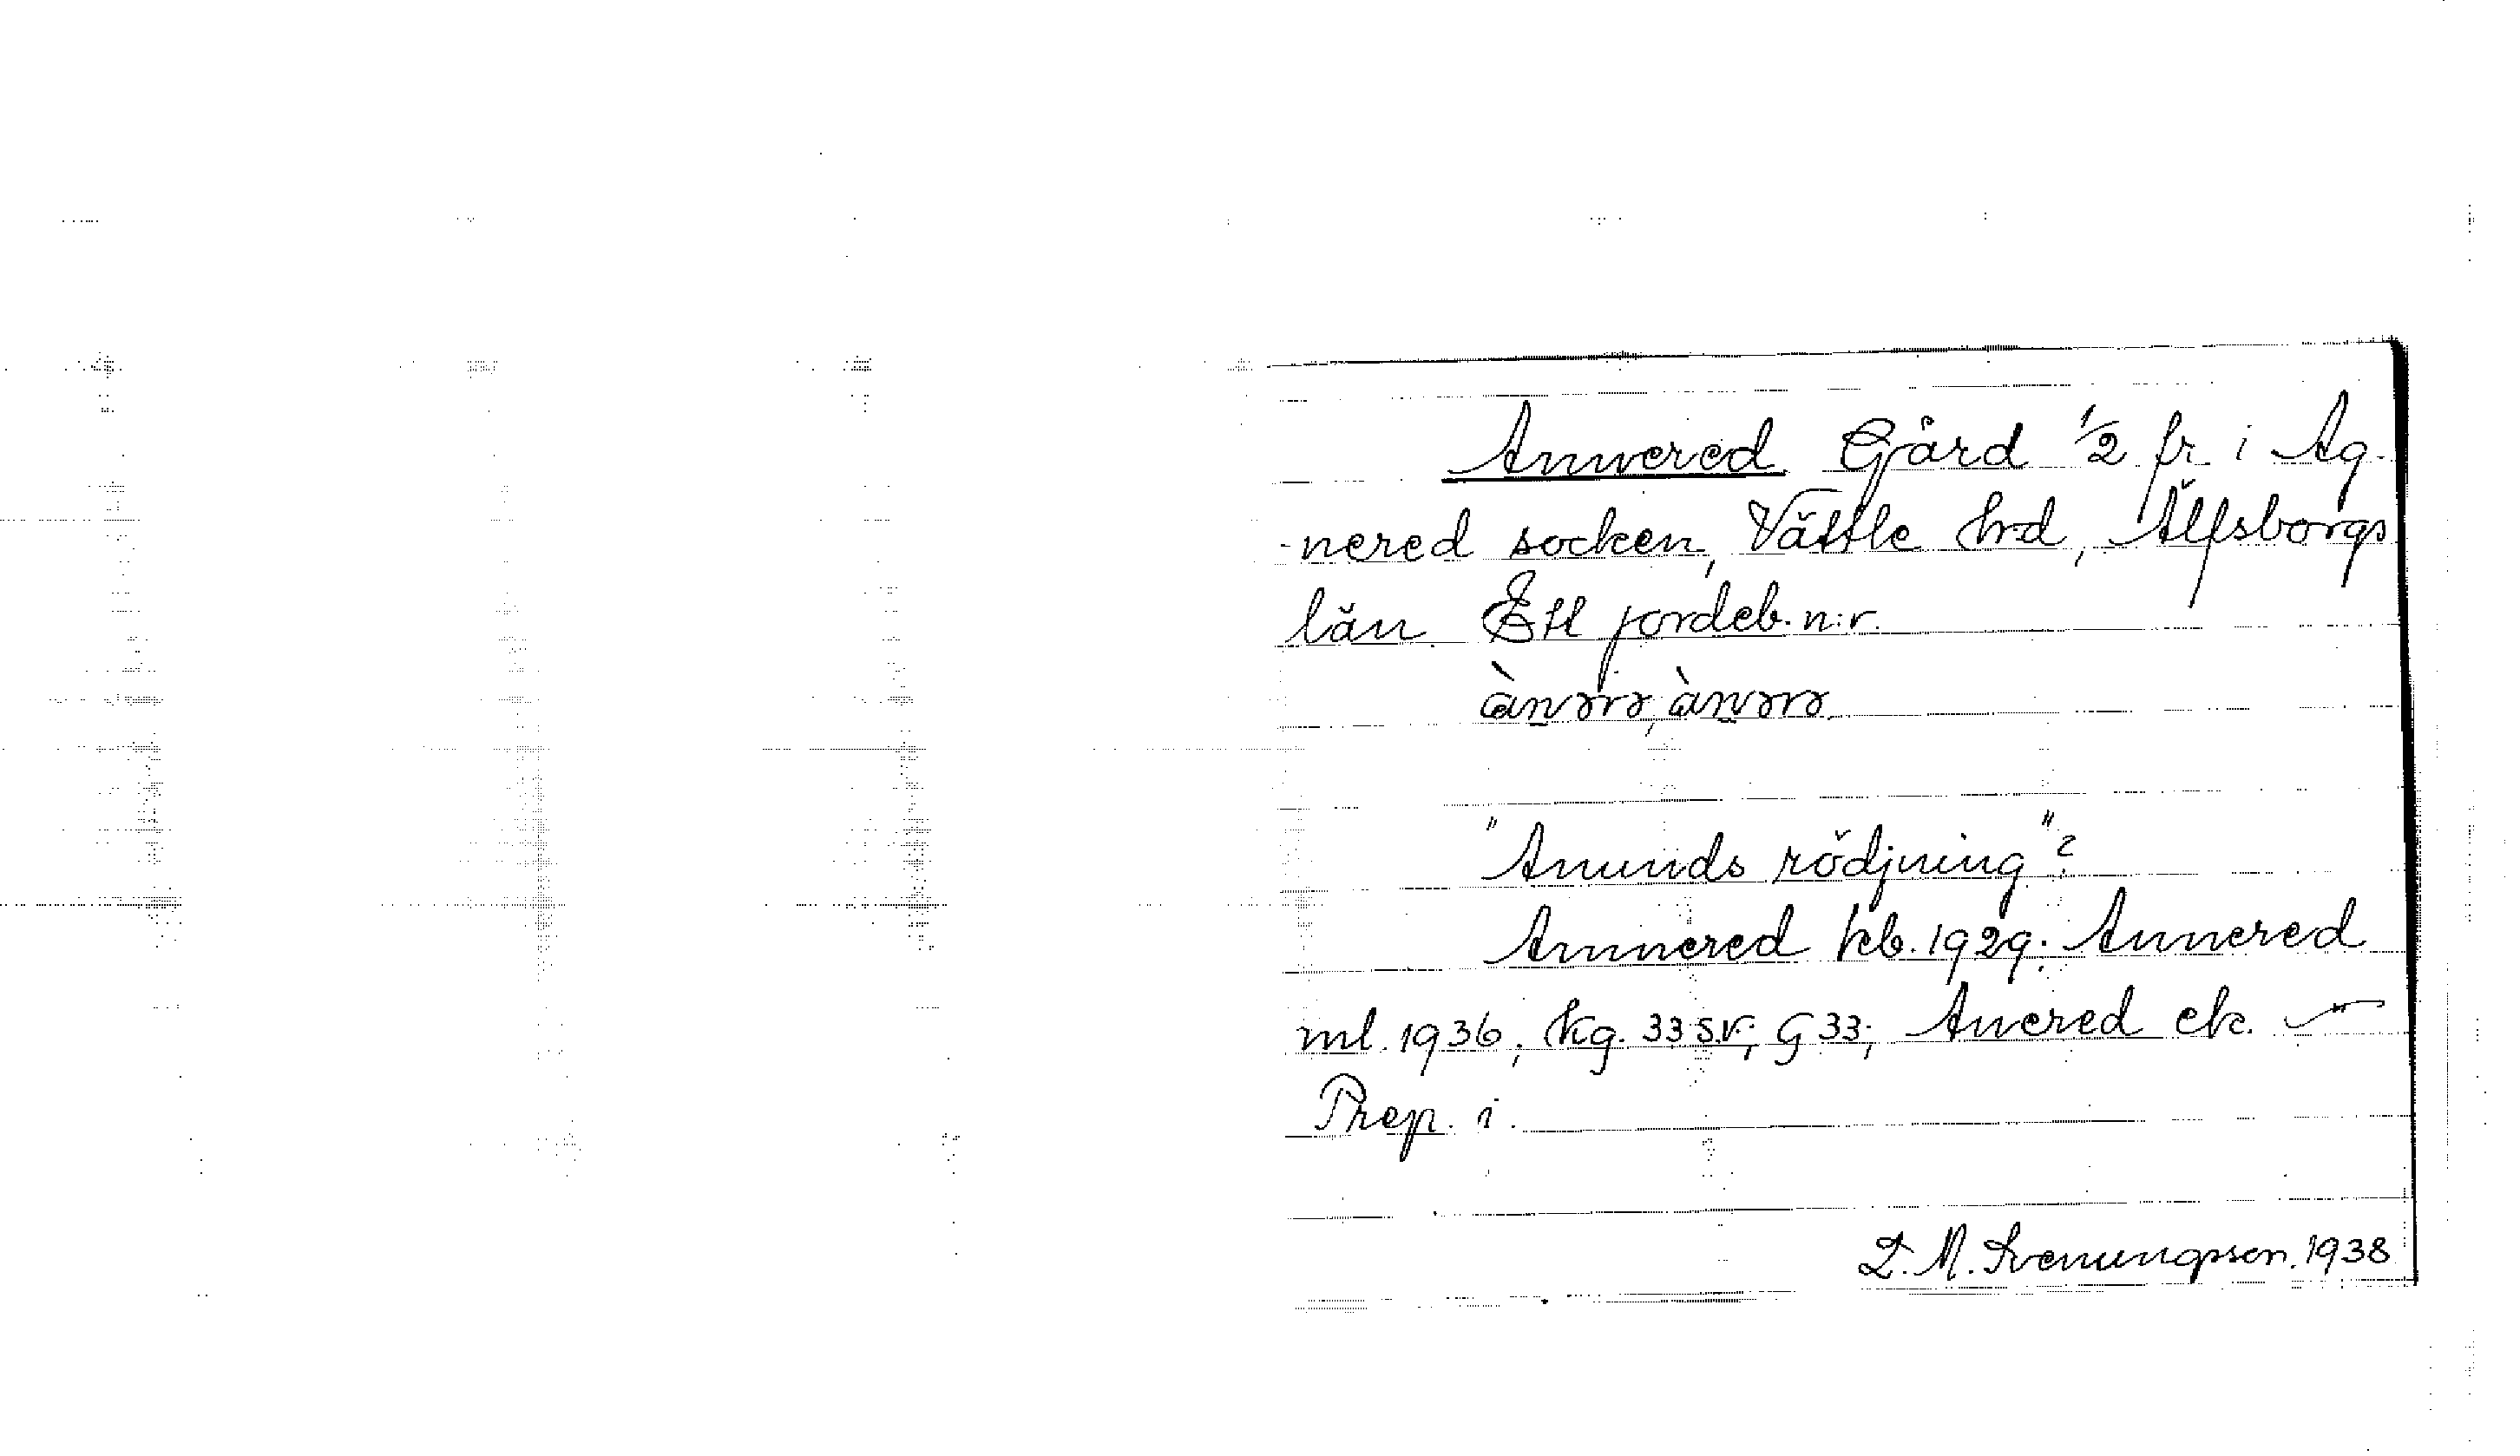 Annered Gård ½ fr. i Ag-
-nered socken, Vättle hrd, Älfsborgs
län. Ett jordeb. n:r.
"Anunds rödjning"?
Annered kb. 1929; Annered
ml. 1936; kg. 33 s.v.; G 33; Anered ek.
Prep. i.
L. M. Svenungsson. 1938